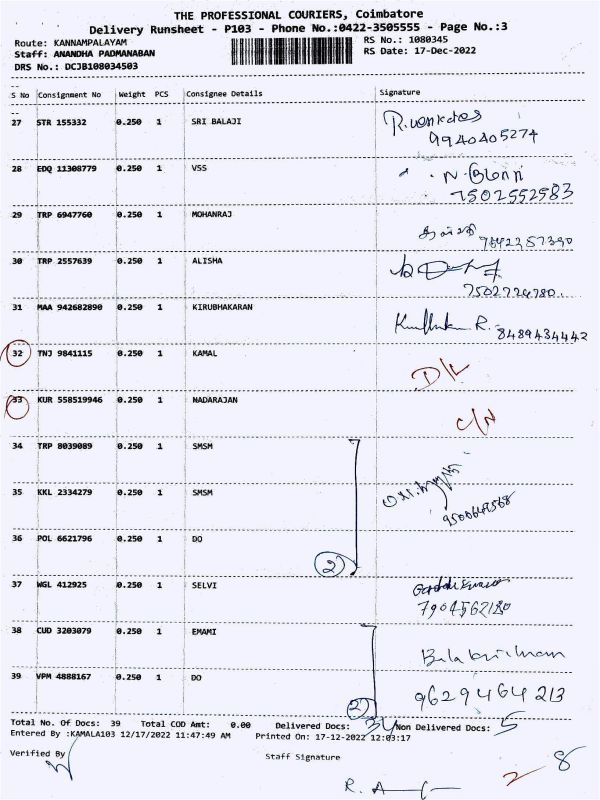 THE PROFESSIONAL COURIERS, Coimbatore
Delivery Runsheet - P103 - Phone No.:0422-3505555 - Page No.:3
Route: KANNAMPALAYAM RS No.: 1080345
Staff: ANANDHA PADMANABAN RS Date: 17-Dec-2022
DRS No.: DCJB108034503
S No Consignment No Weight PCS Consignee Details Signature
27 STR 155332 0.250 1 SRI BALAJI R.venkates
9940405274
28 EDQ 11308779 0.250 1 VSS
7502552583
29 TRP 6947760 0.250 1 MOHANRAJ
30 TRP 2557639 0.250 1 ALISHA
31 MAA 942682890 0.250 1 KIRUBHAKARAN
8489434442
32 TNJ 9841115 0.250 1 KAMAL D/L
33 KUR 558519946 0.250 1 NADARAJAN C/N
34 TRP 8039089 0.250 1 SMSM
35 KKL 2334279 0.250 1 SMSM
36 POL 6621796 0.250 1 DO
2
37 WGL 412925 0.250 1 SELVI
7904562180
38 CUD 3203079 0.250 1 EMAMI Balakrishnan
39 VPM 4888167 0.250 1 DO 9629464213
2
Total No. Of Docs: 39 Total COD Amt: 0.00 Delivered Docs: 34 Non Delivered Docs: 5
Entered By :KAMALA103 12/17/2022 11:47:49 AM Printed On: 17-12-2022 12:03:17
Verified By Staff Signature
2 8